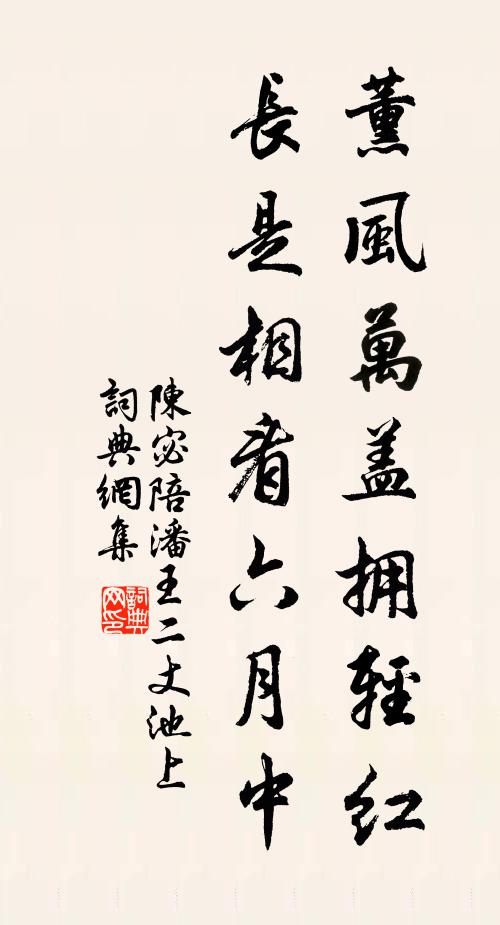 薰風萬盖拥輕紅
長是相看六月中
陳宓陪潘王二丈池上
詞典網集
詞典网印